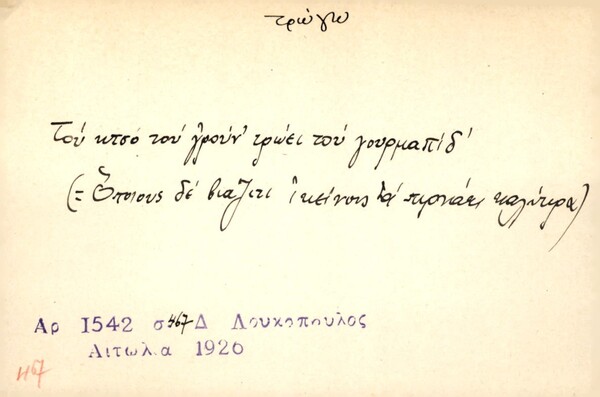 τρώγω
Τού κτσό τού γρούν' τρώει τού γουρμαπίδ'
(= Όποιους δέ βιάζιτι ικείνους τά πιρνάει καλύτιρα)
Αρ 1542 σ 467 Δ Λουκοπουλος
Αιτωλια 1926
467